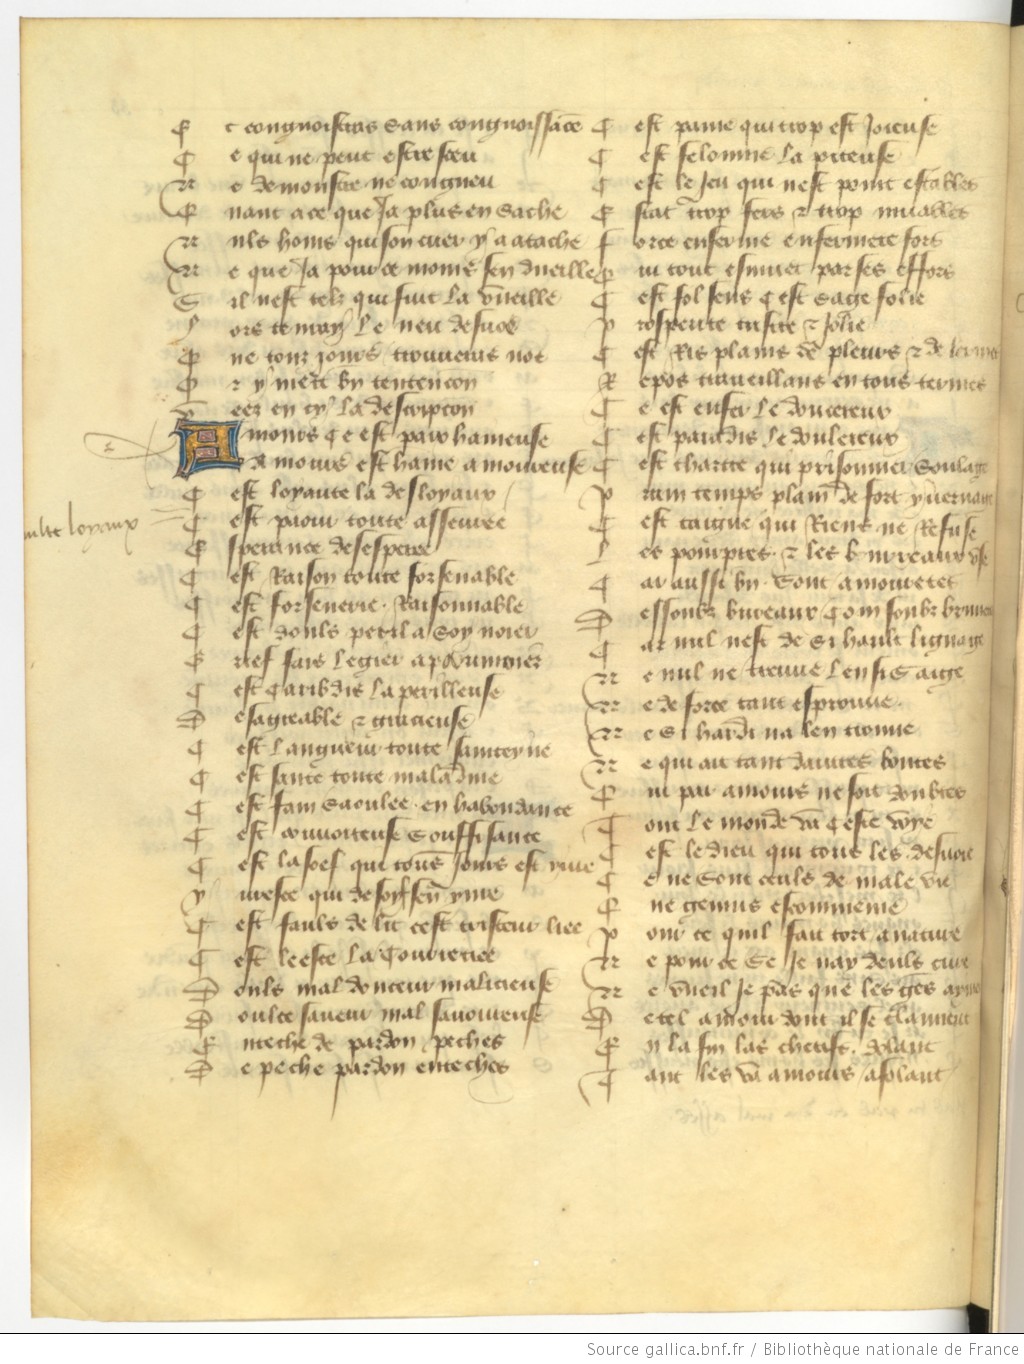 E t congnoistras sans congnoissance
C e qui ne peut estre sceu
N e demonstre ne congneu
Quant a ce que Ja plus en sache
N uls homs qui son cuer y a atache
N e que Ja pour ce moins sen dueille
S il nest telz qui fuir la vueille
L ors te auray le neu desnoe
Que tour jours trouueras noe
Or y met bien tentencon
Veez en cy la descripcon
A mours ce est paix haineuse
A mours est haine amoureuse
C est loyaute la desloyaux
C est paour toute asseuree
E sperance desesperee
C est Raison toute forsenable
C est forsenerie Raisonnable
C est doulz peril a soy noier
G rief fais legier a paumoier
C est Caribdis la perilleuse
D esagreable et gracieuse
C est langueur toute santeyne
C est sante toute maladiue
C est fain saoulee en habondance
C est couuoiteuse souffisance
C est la soef qui tous Jours est yure
Y uresce qui de soyf sen yure
C est fauls delit cest tristeur liee
C est leesce la Courrecee
D ouls mal doulceur malicieuse
D oulce saueur mal sauoureuse
E nteche de pardon peches
D e peche pardon enteches
C est paine qui trop est Joieuse
C est felonnie la piteuse
C est le Jeu qui nest point estables
E stat trop fers et trop muables
F orce enferme enfermete fors
Qui tout esmuet par ses effors
C est fol sens Cest sage folie
P rosperite triste et Jolie
C est Ris plains de pleurs et de lermes
R epos traueillans en tous termes
C e est enfer le doucereux
C est paradis le doulereux
C est chartre qui prisonnier soulage
P rin temps plain de fort yuernage
C est taigne qui Riens ne Refuse
L es pourpres et les bureaux vse
C ar aussi bien sont amouretes
D essoubz bureaux Com soubz brunetes
C ar nul nest de si hault lignaige
N e nul ne treuue len si saige
N e de force tant esprouue
N e si hardi na len trouue
N e qui ait tant dautres bontes
Qui par amours ne soit dontes
T out le monde va ceste voye
C est le dieu qui tous les desuoie
C e ne sont ceuls de male vie
Que genius escommenie
P our ce quil fait tort a nature
N e pour ce se Je nay deuls cure
N e vueil Je pas que les gens ayment
D e tel amour dont il se claiment
E n la fin las chetifs dolant
T ant les va amours afolant